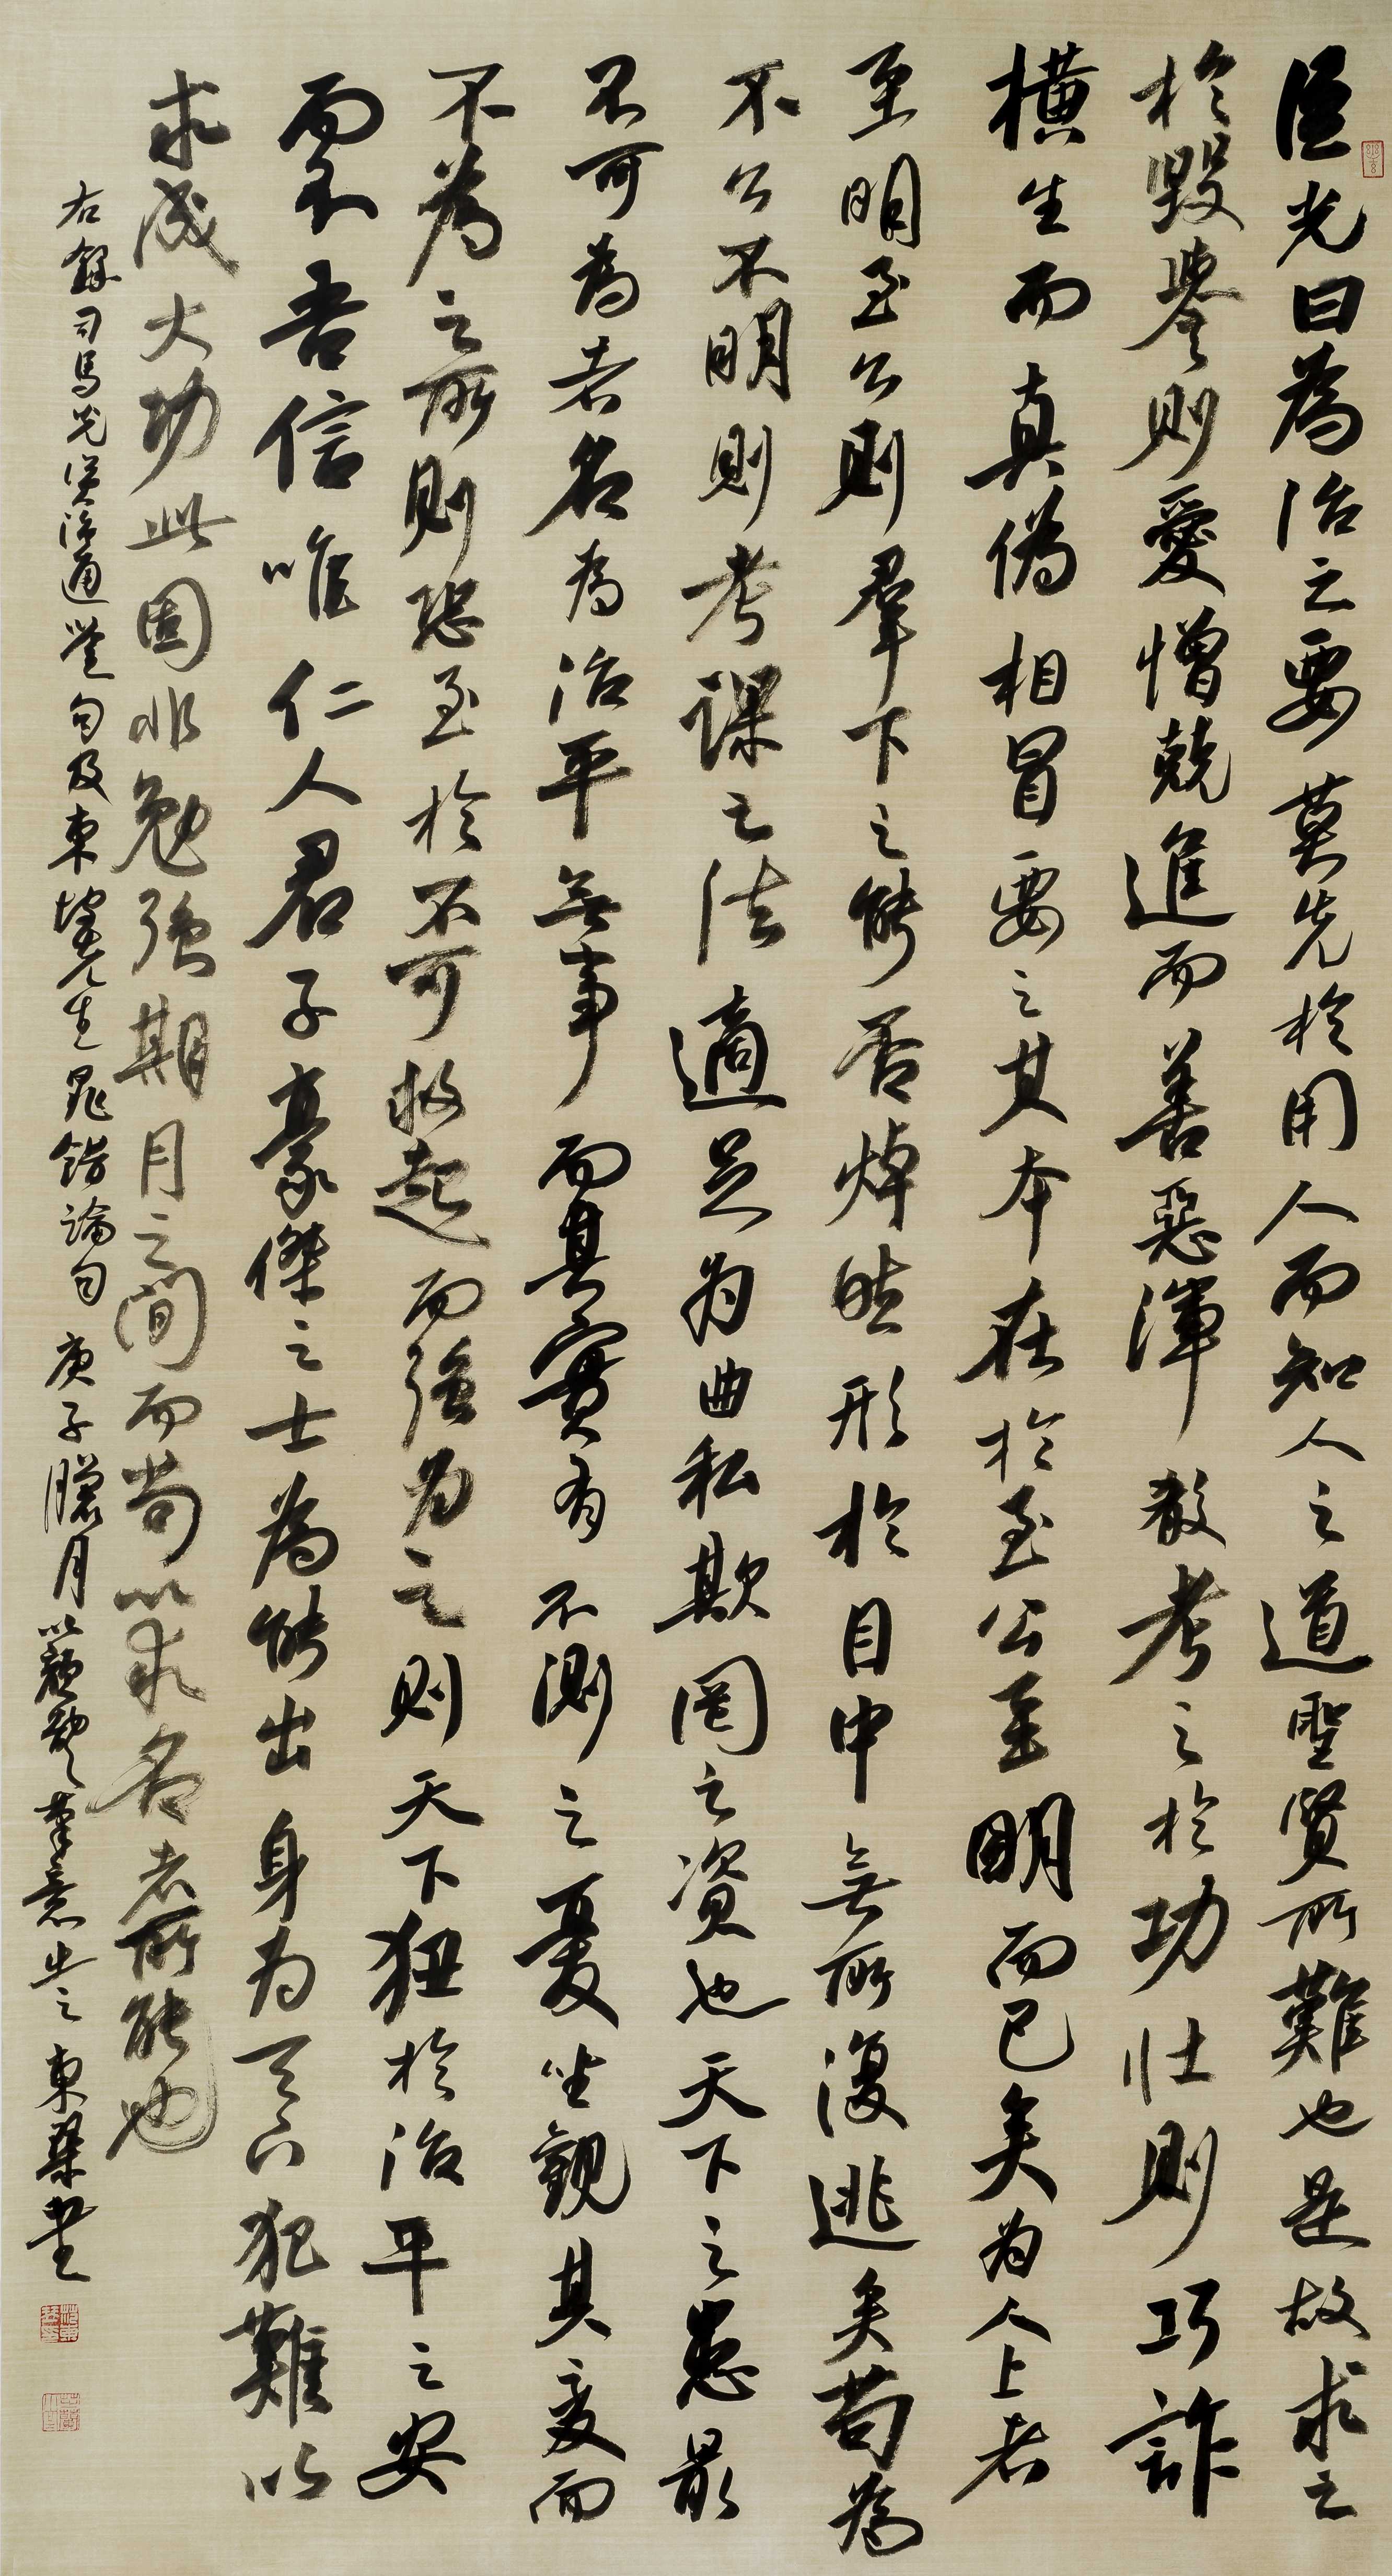 臣光曰為治之要莫先於用人而知人之道聖賢所難也是故求之
於毀譽則愛憎競進而善惡渾殽考之於功狀則巧詐
橫生而真偽相冒要之其本在於至公至明而已矣為人上者
至明至公則羣下之能否焯然形於目中無所復逃矣苟為
不公不明則考課之法適足為曲私欺罔之資也天下之患最
不可為者名為治平無事而其實有不測之憂坐觀其變而
不為之所則恐至於不可救起而強為之則天下狃於治平之安
而不吾信唯仁人君子豪傑之士為能出身為天下犯難以
求成大功此固非勉強期月之間而苟以求名者所能也
右錄司馬光資治通鑒句及東坡先生晁錯論句 庚子臘月以顏魯公筆意出之東琹書